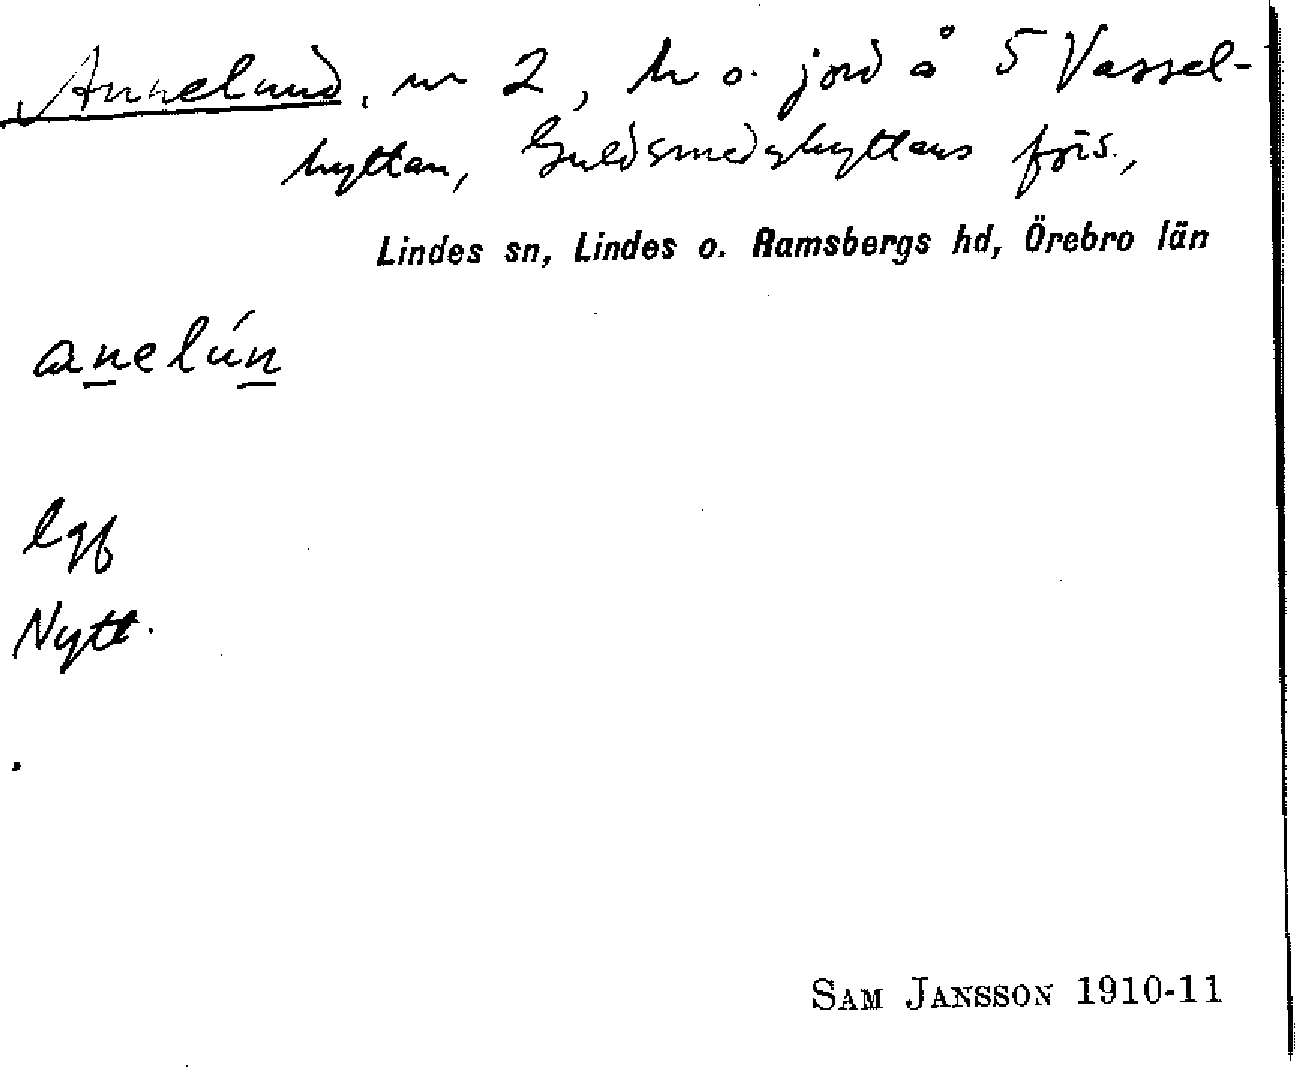 Annelund, nr 2, h o. jord å 5 Vassel-
hyttan, Guldsmedshyttans fjrs.,
Lindes sn, Lindes o. Ramsbergs hd, Örebro län
anelún
lgf
Nytt.
SAM JANSSON 1910-11